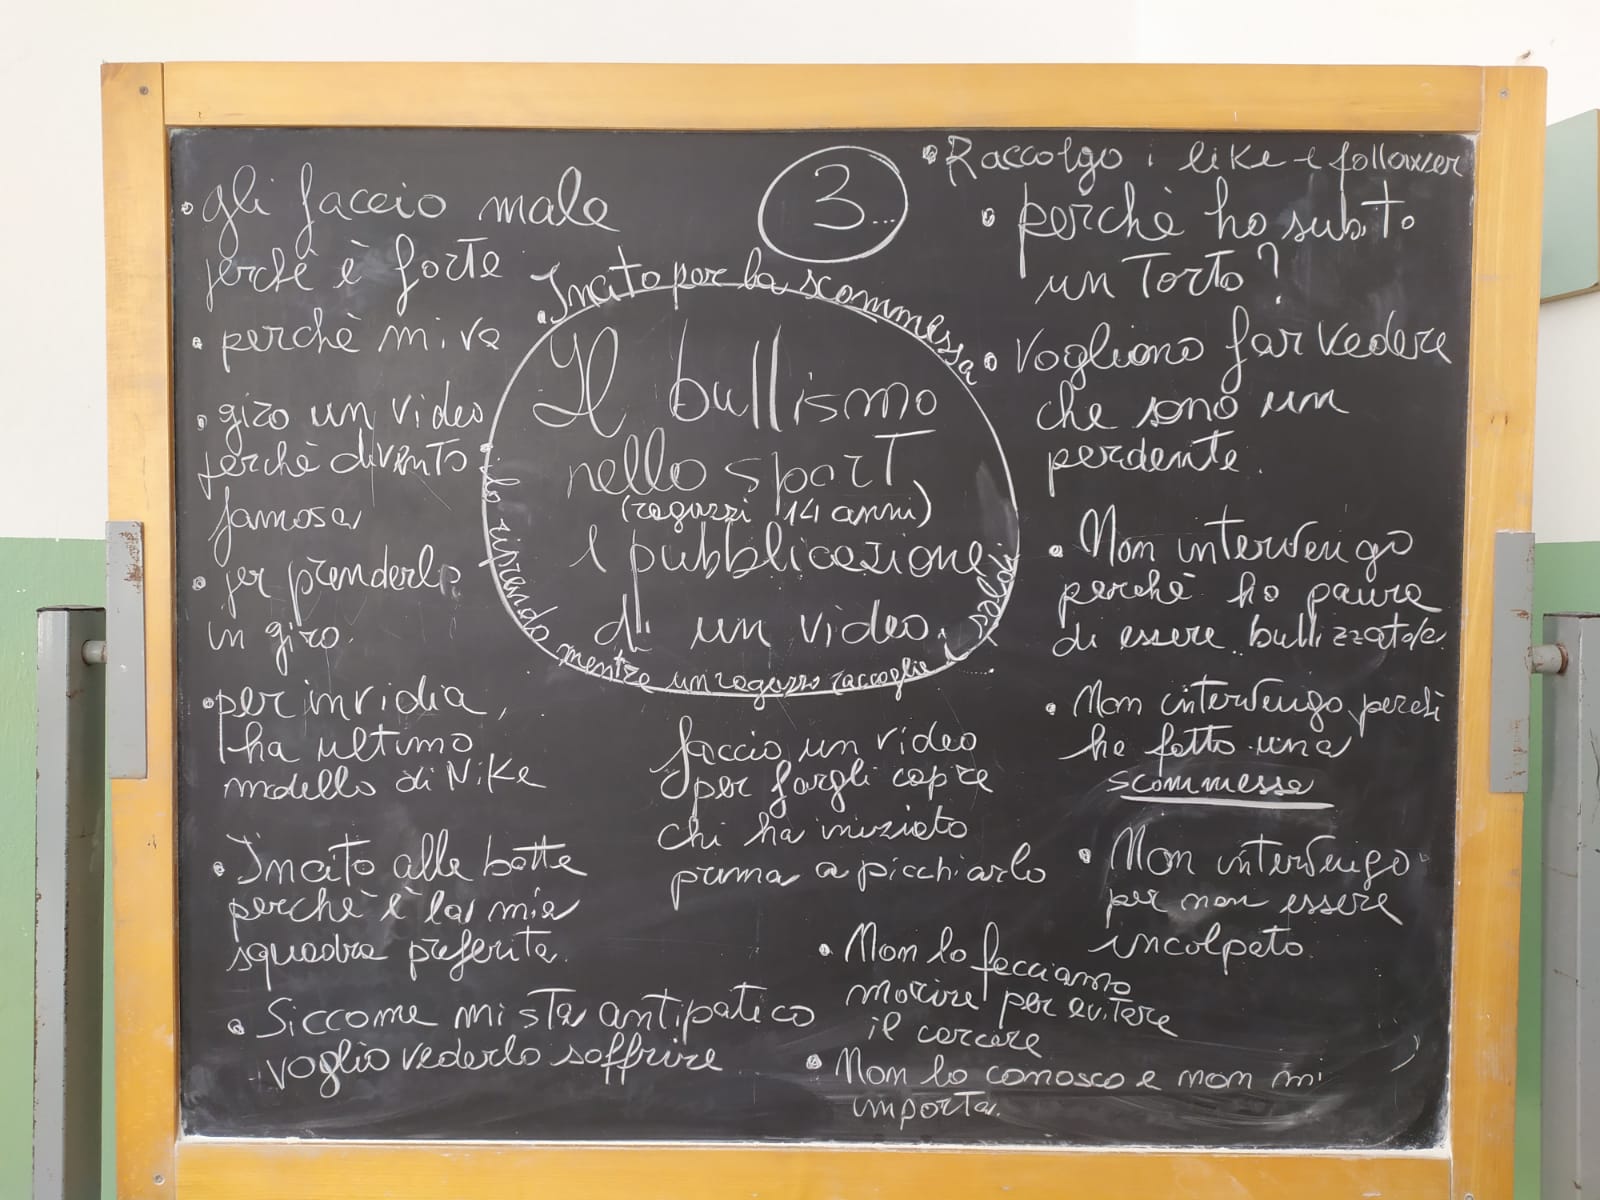 • gli faccio male
perchè è forte
• perchè mi va
• giro un video
perchè divento
famosa
• per prenderlo
in giro.
• per invidia,
ha ultimo
modello di Nike
• Incito alle botte
perchè è la mia
squadra preferita.
• Siccome mi sta antipatico
voglio vederlo soffrire
3...
• Incito per la scommessa
Il bullismo
nello sport
(ragazzi 14 anni)
e pubblicazione
di un video.
• lo riprendo mentre un ragazzo raccoglie i soldi
faccio un video
per fargli capire
chi ha iniziato
prima a picchiarlo
• Non lo facciamo
morire per evitare
il carcere
• Non lo conosco e non mi
importa.
• Raccolgo i like e follower
• perchè ho subito
un torto?
• Vogliono far vedere
che sono un
perdente.
• Non intervengo
perchè ho paura
di essere bullizzato/a
• Non intervengo perchè
ho fatto una
scommessa
• Non intervengo
per non essere
incolpato.